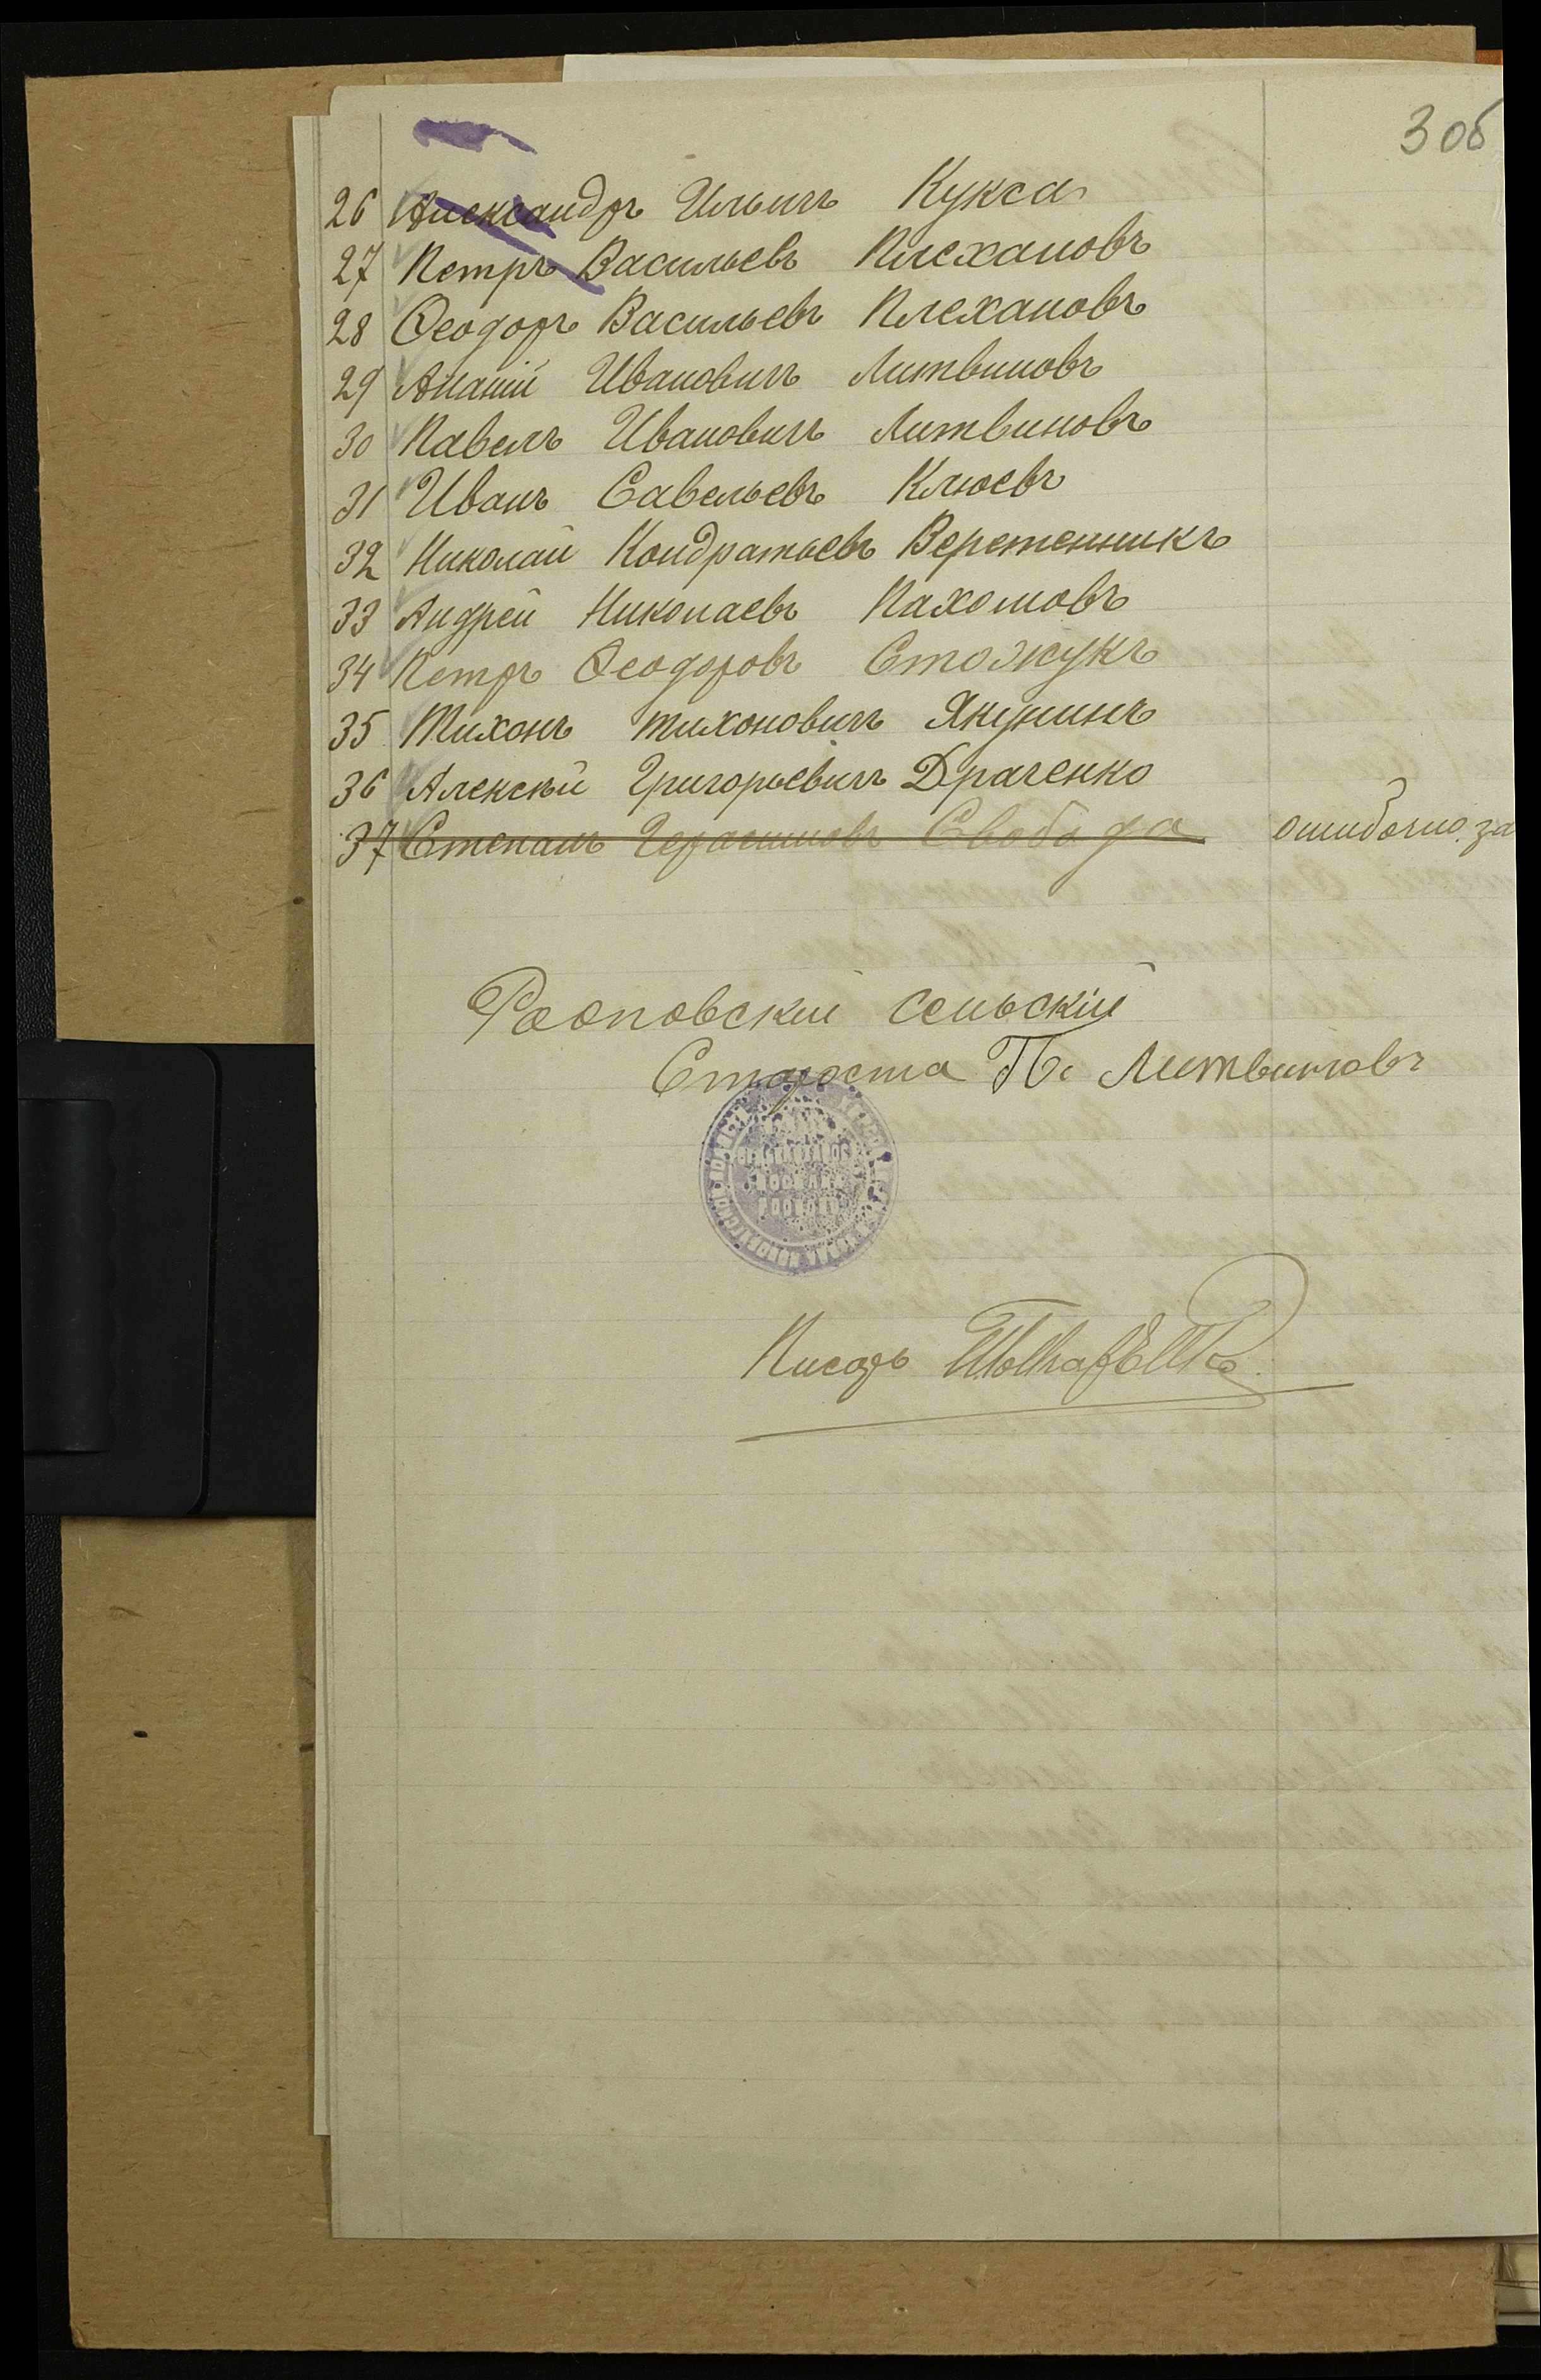 3 об
26 Александръ Ильичъ Кукса
27 Петръ Васильевъ Плехановъ
28 Ѳеодоръ Васильевъ Плехановъ
29 Ананій Ивановичъ Литвиновъ
30 Павелъ Ивановичъ Литвиновъ
31 Иванъ Савельевъ Клюевъ
32 Николай Кондратьевъ Веретенникъ
33 Андрей Николаевъ Пахомовъ
34 Петръ Ѳеодоровъ Стожукъ
35 Тихонъ тихоновичъ Якунинъ
36 Алексѣй Григорьевичъ Драченко
37 Степанъ Герасимовъ Свобода ошибочно за
сельскій
Староста П. Литвиновъ
Писарь